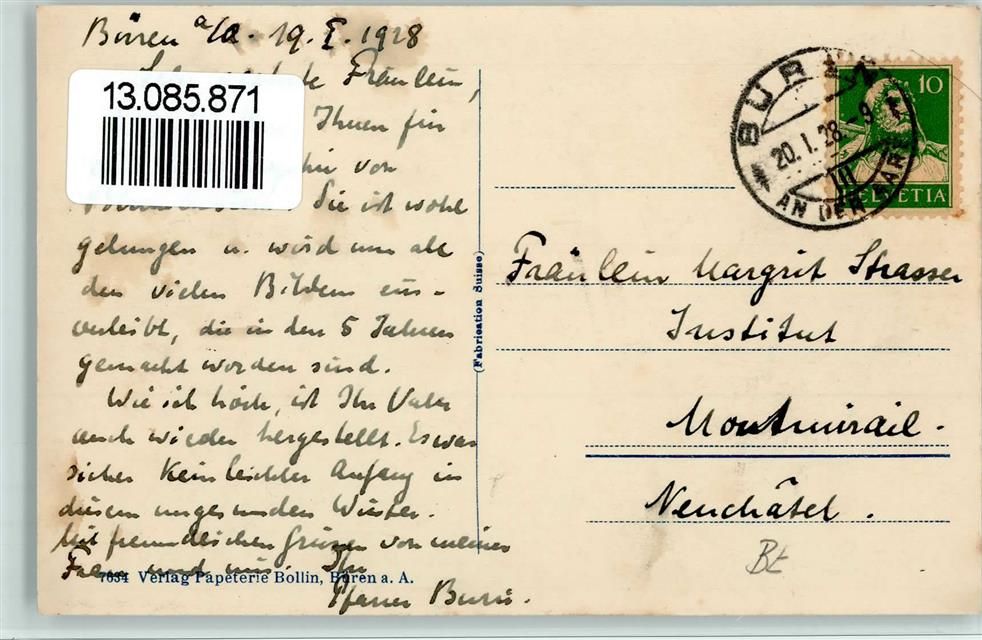 Büren a/A. 19. I. 1928
Fräulein,
13.085.871
Ihnen für
von
Sie ist wohl
gelungen u. wird nun all
den vielen Bildern ein-
verleibt, die in den 5 Jahren
gemacht worden sind.
Wie ich höre, ist Ihr Vater
auch wieder hergestellt. Es war
sicher kein leichter Anfang in
diesem ungesunden Winter.
Mit freundlichen Grüssen von meiner
Frau und mir. Ihr
Pfarrer Burri.
7634 Verlag Papeterie Bollin, Büren a. A.
(Fabrication Suisse)
BÜREN
20. I. 28. - 9
III
AN DER AARE
10
HELVETIA
Fräulein Margrit Strasser
Institut
Montmirail.
Neuchâtel.
Bt